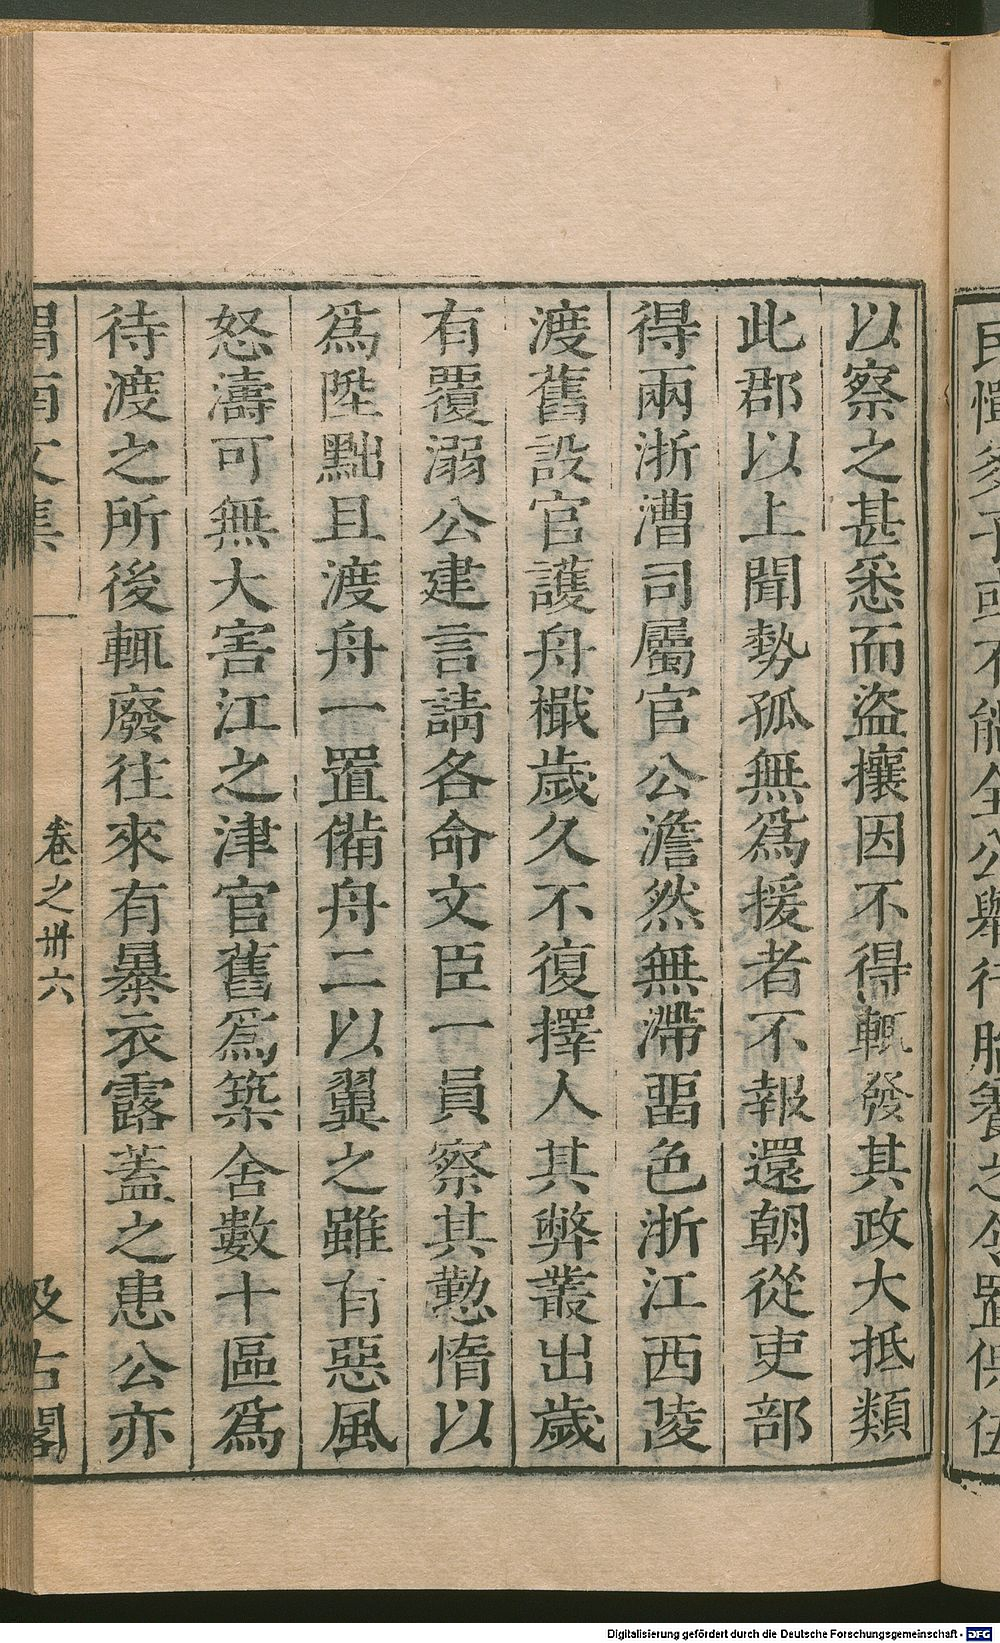 以察之甚悉而盜攘因不得輒發其政大抵類
此郡以上聞勢孤無爲援者不報還朝從吏部
得兩浙漕司屬官公澹然無滯畱色浙江西陵
渡舊設官護舟檝歲久不復擇人其弊叢出歲
有覆溺公建言請各命文臣一員察其懃惰以
爲陞黜且渡舟一置備舟二以翼之雖有惡風
怒濤可無大害江之津官舊爲築舍數十區爲
待渡之所後輒廢往來有暴衣露蓋之患公亦
渭南文集
卷之卅六
汲古閣
Digitalisierung gefördert durch die Deutsche Forschungsgemeinschaft - DFG